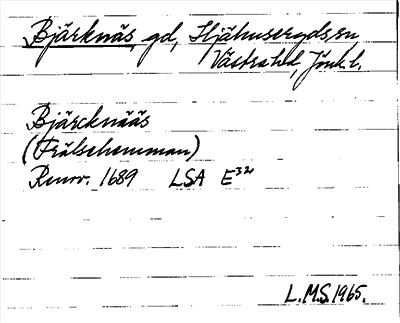 Bjärknäs, gd, Stjähusergds sn
Västra hd, Jönk. l.
Bjärcknääs
(Frälsehemman)
Renov. 1689 LSA E³²
L.M.S. 1965.